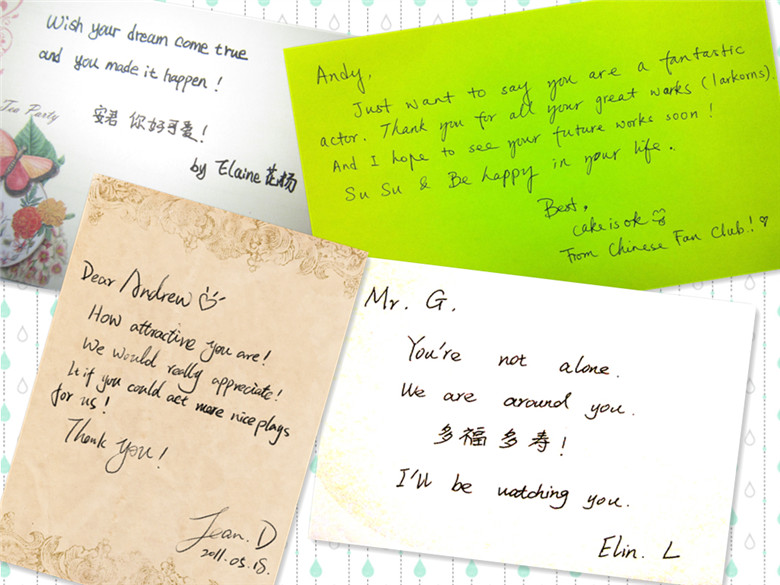 Wish your dream come true
and you made it happen!
安君 你好可爱!
by Elaine 花杨
Tea Party
Andy,
Just want to say you are a fantastic
actor. Thank you for all your great works (larkorns).
And I hope to see your future works soon!
Su Su & Be happy in your life.
Best,
cakeisok
From Chinese Fan Club!
Dear Andrew
How attractive you are!
We would really appreciate!
It if you could act more nice plays
for us!
Thank you!
Jean. D
2011.05.18.
Mr. G.
You're not alone.
We are around you.
多福多寿!
I'll be watching you.
Elin. L